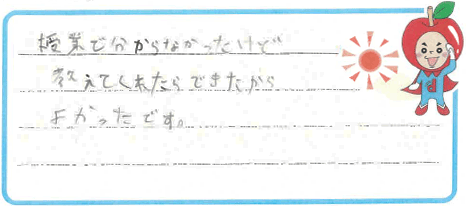 授業で分からなかったけど
教えてくれたらできたから
よかったです。